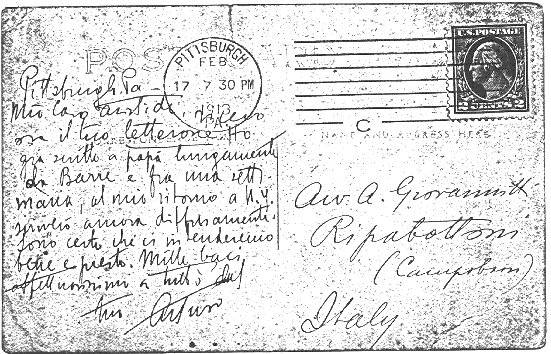 POST
PITTSBURGH
FEB
17 7 30 PM
1913
PA.
U.S. POSTAGE
C
NAME AND ADDRESS HERE
Pittsburgh. Pa –
Mio Caro Aristide, ricevo
ora il tuo letterone. Ho
già scritto a papà lungamente
da Barre e fra una setti-
mana, al mio ritorno a N.Y.
scriverò ancora diffusamente.
Sono certo che ci intenderemo
bene e presto. Mille baci
affettuosissimi a tutti dal
tuo Arturo
Avv. A. Giovannitti
Ripabottoni
(Campobasso)
Italy